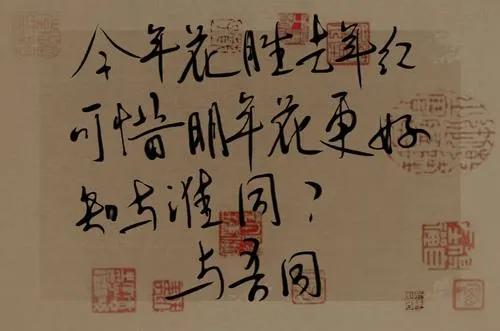 今年花胜去年红
可惜明年花更好
知与谁同？
与吾同